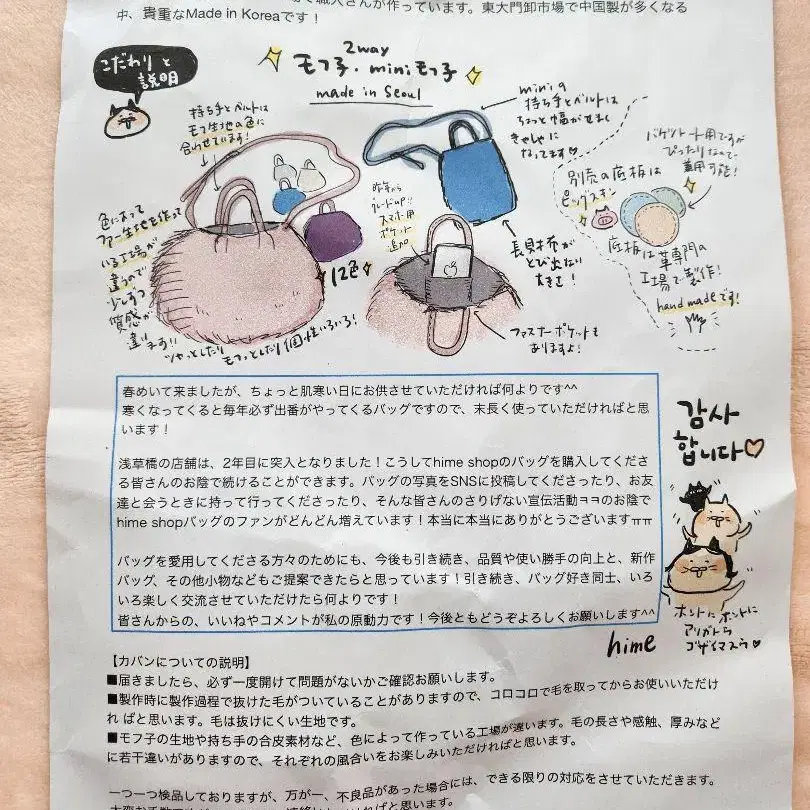 職人さんが作っています。東大門卸市場で中国製が多くなる
中、貴重なMade in Koreaです！
こだわりと
説明
2way
モフ子・miniモフ子
made in Seoul
持ち手とベルトは
モフ生地の色に
合わせています!
miniの
持ち手とベルトは
ちょっと幅がせまく
きゃしゃに
なってます♡
バケツトート用ですが
ぴったりなので
兼用可能!
別売の底板は
ピッグスキン
底板は革専門の
工場で製作!
hand madeです!
色によって
ファー生地を作って
いる工場が
違うので
少しずつ
質感が
違います!!
ツヤっとしたり モフっとしたり 個性いろいろ!
12色
昨年から
グレードUP!!
スマホ用
ポケット
追加
長財布が
とび出ない
大きさ!
ファスナーポケットも
ありますよ!
春めいて来ましたが、ちょっと肌寒い日にお供させていただければ何よりです^^
寒くなってくると毎年必ず出番がやってくるバッグですので、末長く使っていただければと思
います！
浅草橋の店舗は、2年目に突入となりました！こうしてhime shopのバッグを購入してくださ
る皆さんのお陰で続けることができます。バッグの写真をSNSに投稿してくださったり、お友
達と会うときに持って行ってくださったり、そんな皆さんのさりげない宣伝活動ㅋㅋのお陰で
hime shopバッグのファンがどんどん増えています！本当に本当にありがとうございますㅠㅠ
バッグを愛用してくださる方々のためにも、今後も引き続き、品質や使い勝手の向上と、新作
バッグ、その他小物などもご提案できたらと思っています！引き続き、バッグ好き同士、いろ
いろ楽しく交流させていただけたら何よりです！
皆さんからの、いいねやコメントが私の原動力です！今後ともどうぞよろしくお願いします^^
hime
감사
합니다♡
ホントにホントに
アリガトウ
ゴザイマスウ♡
【カバンについての説明】
■届きましたら、必ず一度開けて問題がないかご確認お願いします。
■製作時に製作過程で抜けた毛がついていることがありますので、コロコロで毛を取ってからお使いいただけ
れ ばと思います。毛は抜けにくい生地です。
■モフ子の生地や持ち手の合皮素材など、色によって作っている工場が違います。毛の長さや感触、厚みなど
に若干違いがありますので、それぞれの風合いをお楽しみいただければと思います。
一つ一つ検品しておりますが、万が一、不良品があった場合には、できる限りの対応をさせていただきます。